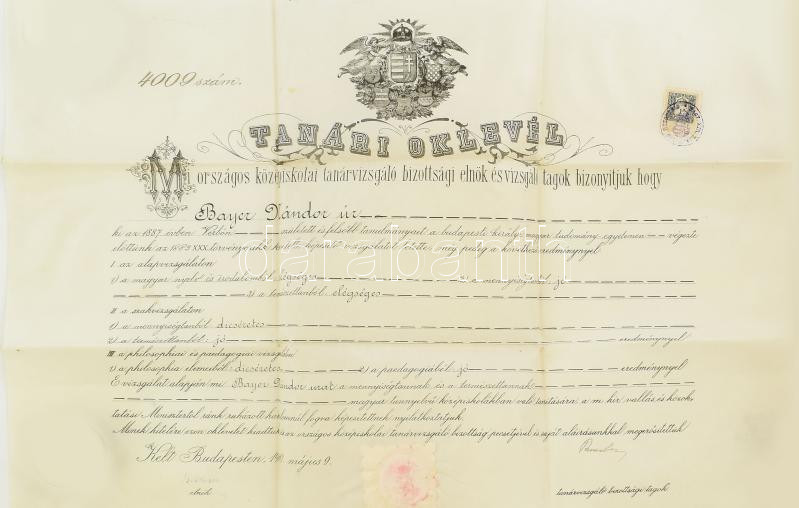 4009 szám.
TANÁRI OKLEVÉL
Mi országos középiskolai tanárvizsgáló bizottsági elnök és vizsgáló tagok bizonyitjuk hogy
Bayer Sándor úr
ki az 1887 évben született és felsőbb tanulmányait a budapesti királyi magyar tudomány egyetemen végezte
előttünk az 1883 XXX. törvény által képesítő vizsgálatot tette meg pedig a következő eredménynyel
I. az alapvizsgálaton
1) a magyar nyelv és irodalomból elégséges 2) a mennyiségtanból: jó
3) a természettanból: elégséges
II. a szakvizsgálaton
1) a mennyiségtanból dicséretes
2) a természettanból: jó eredménynyel
III. a philosophiai és paedagogiai vizsgán
1) a philosophia elemeiből: dicséretes 2) a paedagogiából: jó eredménynyel
E vizsgálat alapján mi Bayer Sándor urat a mennyiségtannak és a természettannak
magyar tannyelvü középiskolákban való tanítására a m. kir. vallás és közok-
tatási Minisztertől ránk ruházott hatalomnál fogva képesítettnek nyilatkoztatjuk.
Minek hiteléül ezen oklevelet kiadtuk az országos középiskolai tanárvizsgáló bizottság pecsétjével és saját aláirásunkkal megerősítettük
Kelt Budapesten, május 9.
elnök
tanárvizsgáló bizottsági tagok
darabanth